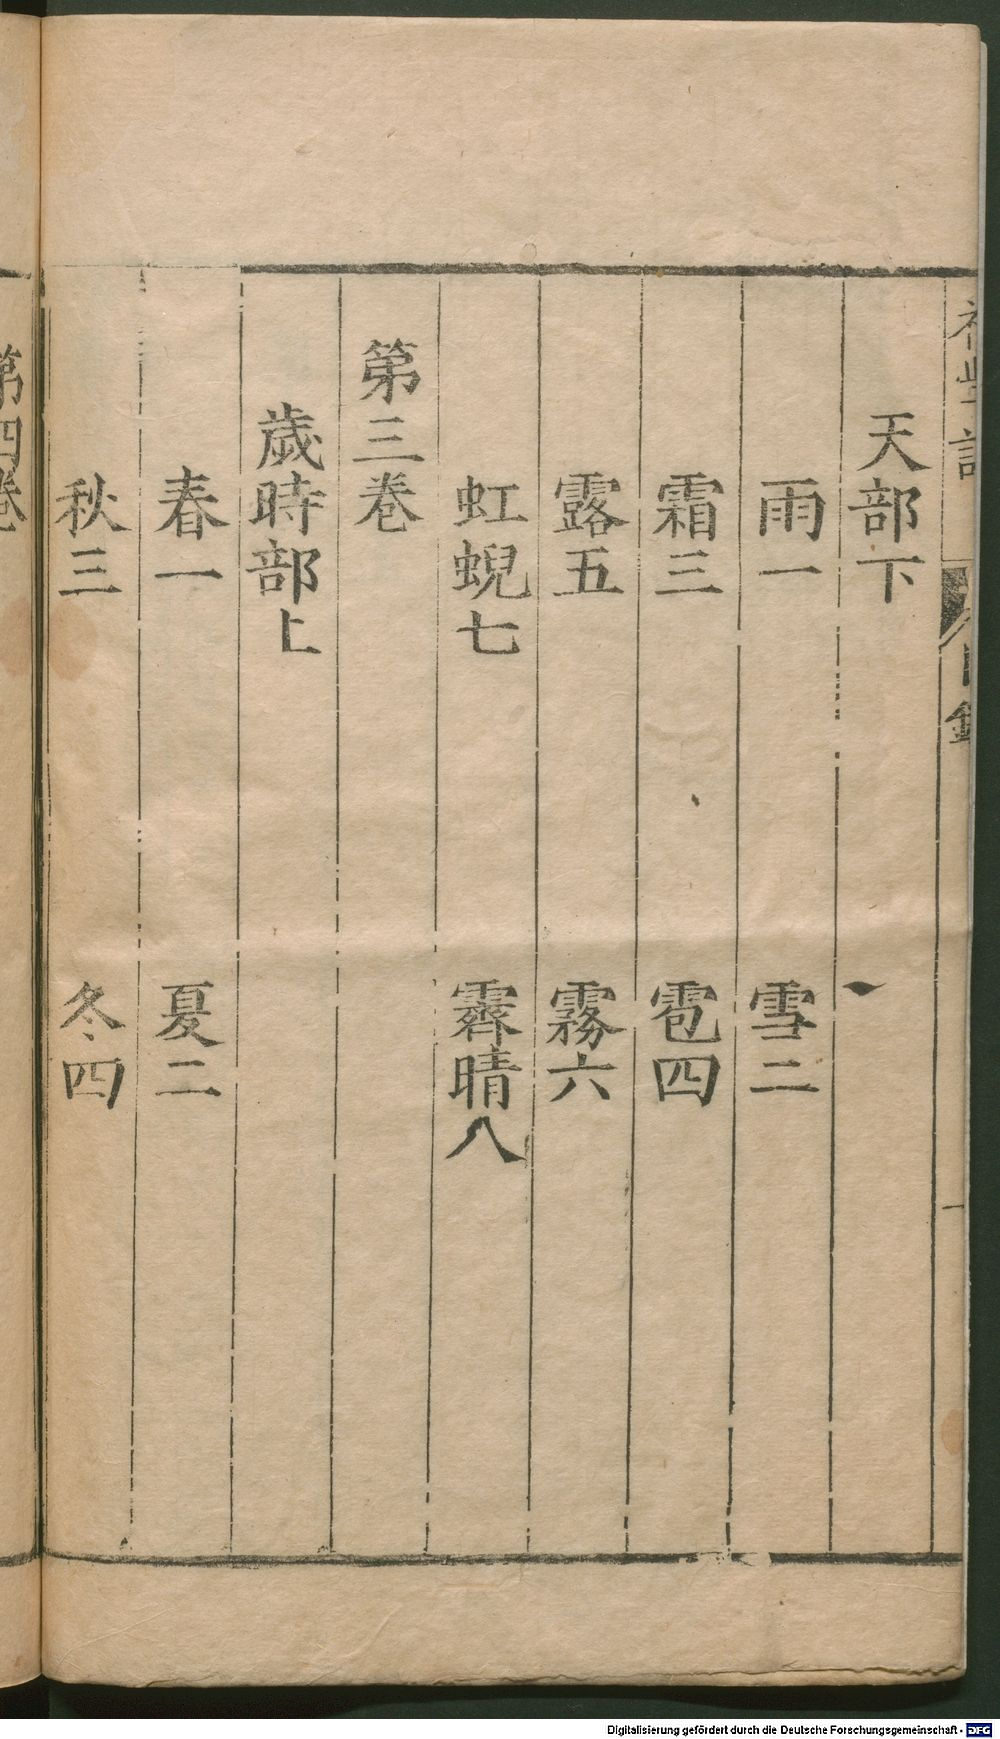 天部下
雨一 雪二
霜三 雹四
露五 霧六
虹蜺七 霽晴八
第三卷
歲時部上
春一 夏二
秋三 冬四
第四卷
Digitalisierung gefördert durch die Deutsche Forschungsgemeinschaft - DFG